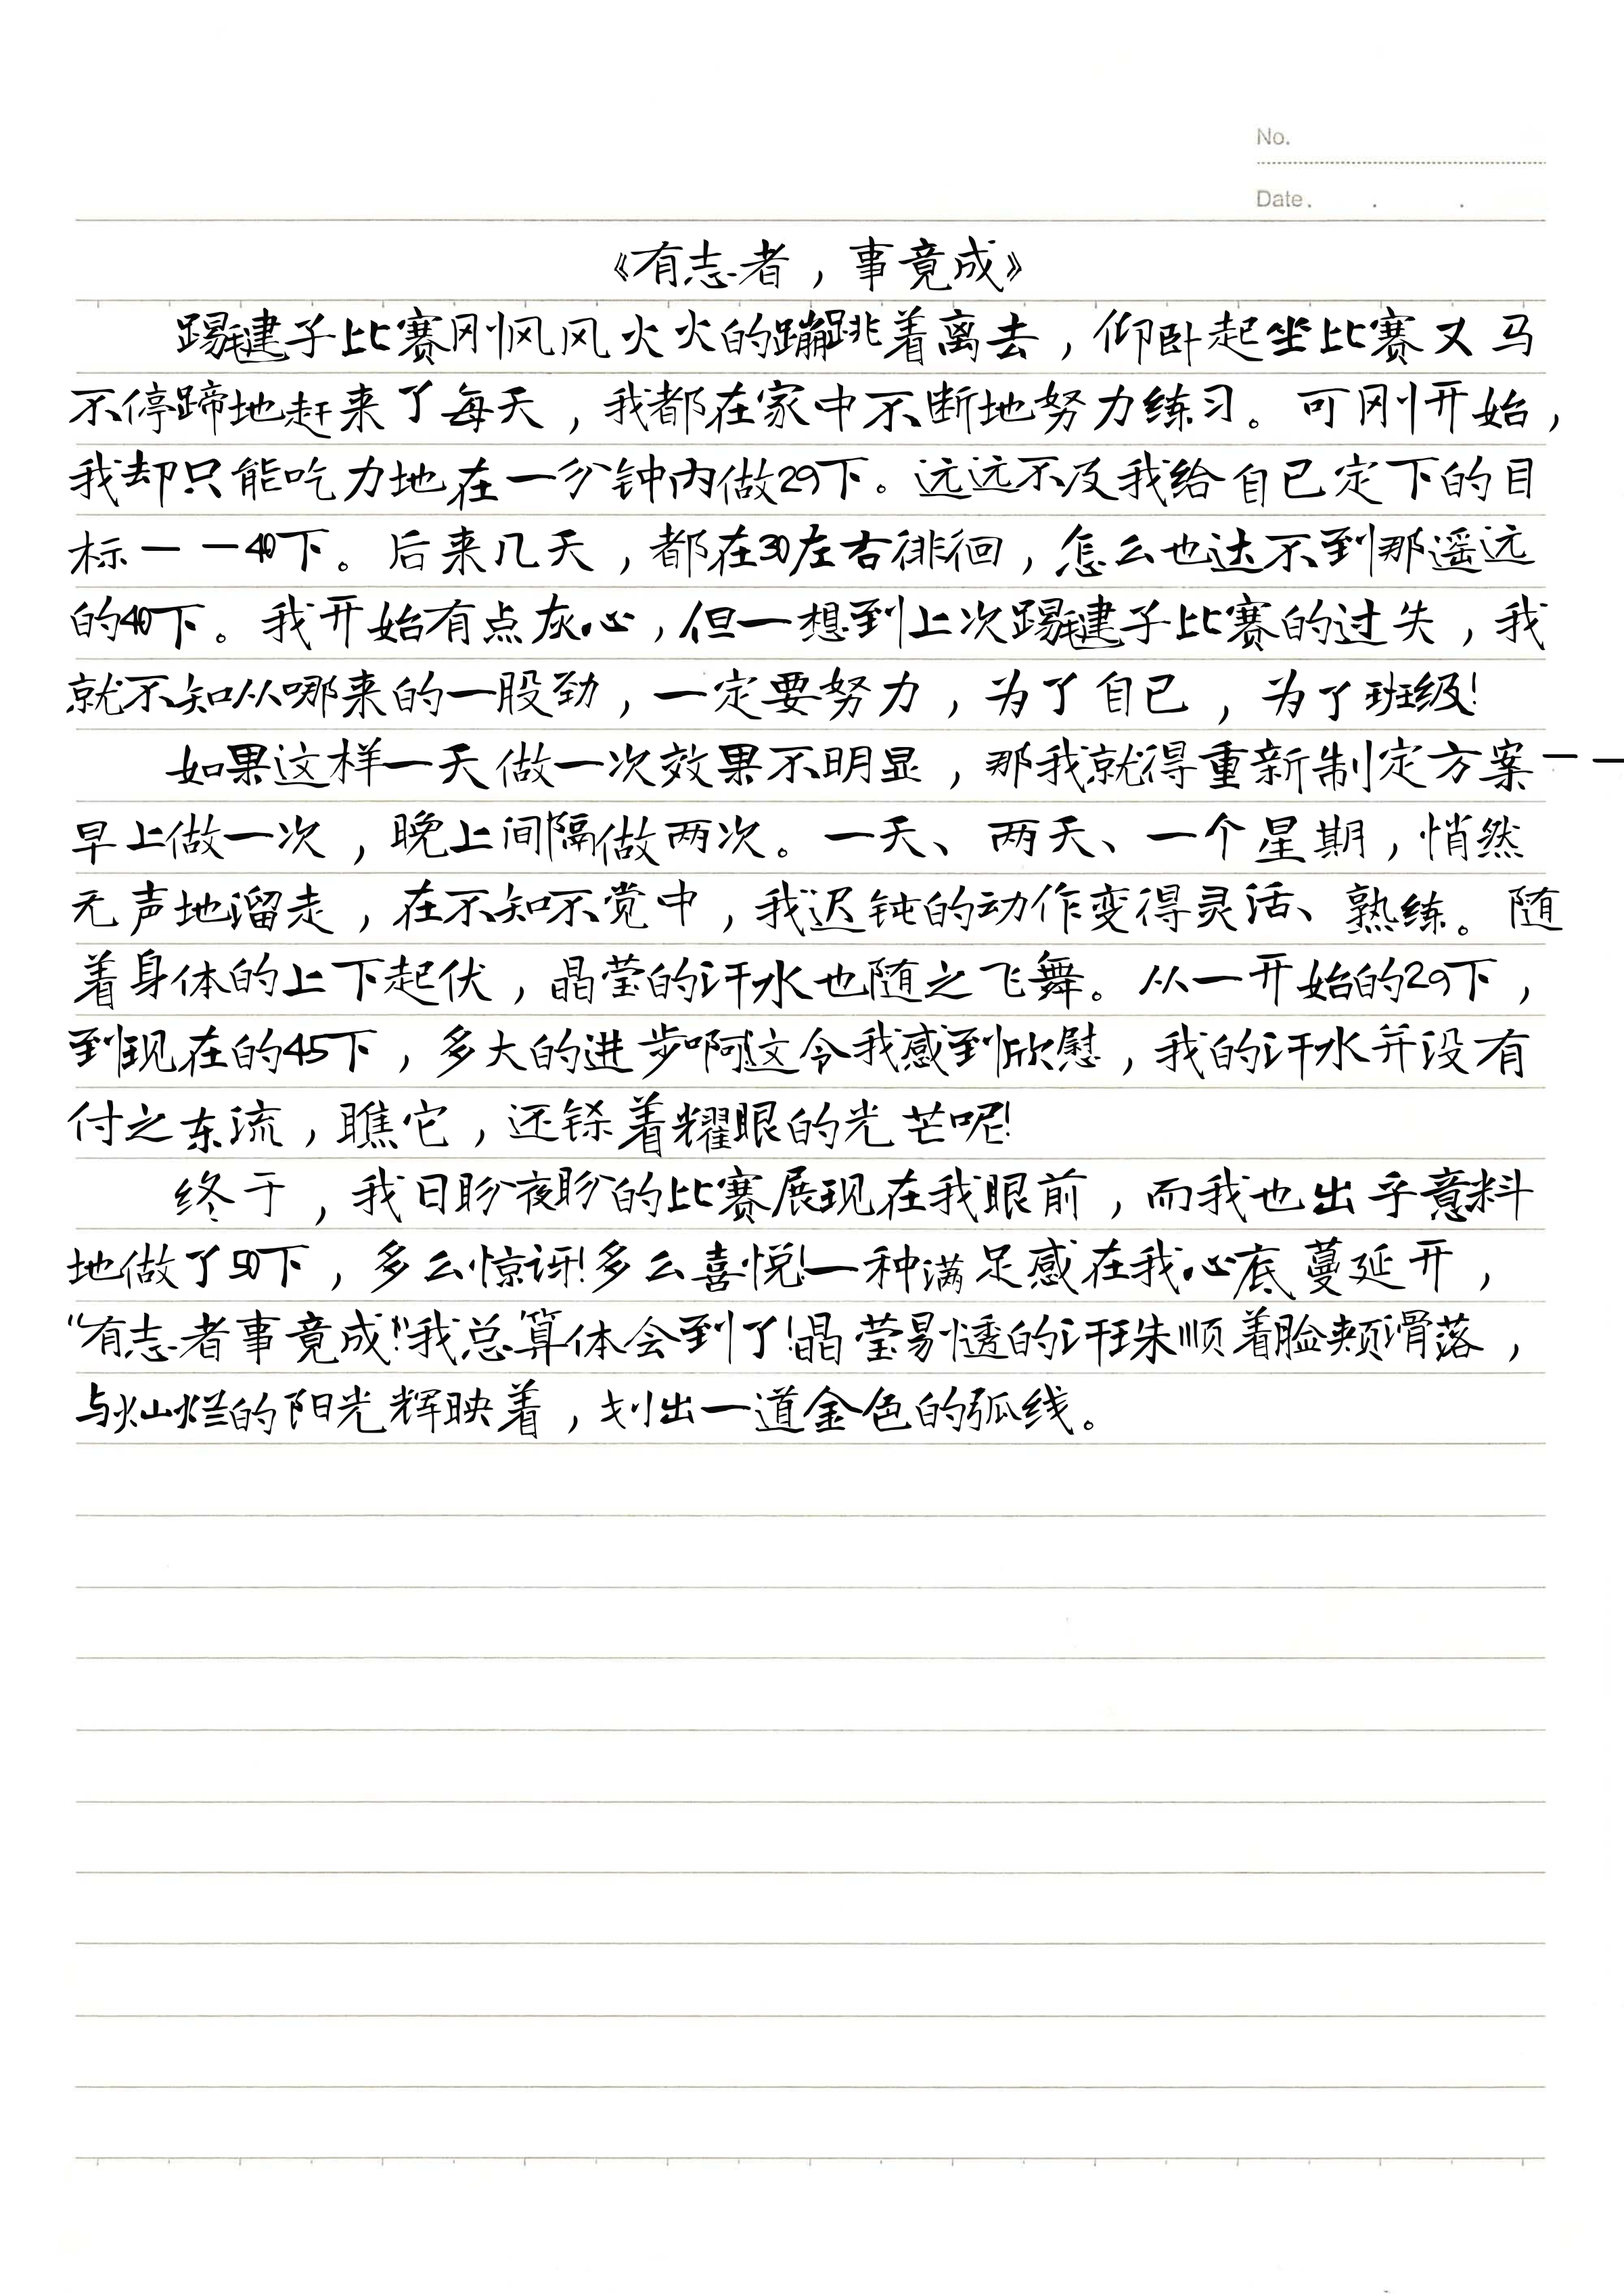 No.
Date.
《有志者，事竟成》
踢毽子比赛刚风风火火的蹦跳着离去，仰卧起坐比赛又马
不停蹄地赶来了每天，我都在家中不断地努力练习。可刚开始，
我却只能吃力地在一分钟内做29下。远远不及我给自己定下的目
标——40下。后来几天，都在30左右徘徊，怎么也达不到那遥远
的40下。我开始有点灰心，但一想到上次踢毽子比赛的过失，我
就不知从哪来的一股劲，一定要努力，为了自己，为了班级！
如果这样一天做一次效果不明显，那我就得重新制定方案——
早上做一次，晚上间隔做两次。一天、两天、一个星期，悄然
无声地溜走，在不知不觉中，我迟钝的动作变得灵活、熟练。随
着身体的上下起伏，晶莹的汗水也随之飞舞。从一开始的29下，
到现在的45下，多大的进步啊！这令我感到欣慰，我的汗水并没有
付之东流，瞧它，还铩着耀眼的光芒呢！
终于，我日盼夜盼的比赛展现在我眼前，而我也出乎意料
地做了50下，多么惊讶！多么喜悦！一种满足感在我心底蔓延开，
“有志者事竟成！”我总算体会到了！晶莹剔透的汗珠顺着脸颊滑落，
与灿烂的阳光辉映着，划出一道金色的弧线。